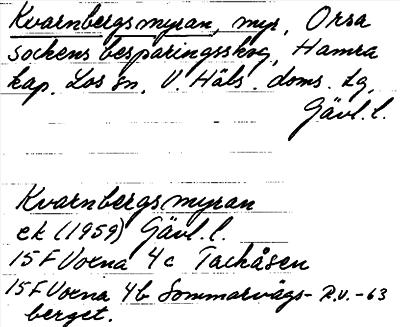 Kvarnbergsmyran, myr, Orsa
sockens besparingsskog, Hamra
kap. Los sn, V. Häls. doms. lg,
Gävl. l.
Kvarnbergsmyran
ek (1959) Gävl. l.
15 F Voxna 4c Tackåsen
15 F Voxna 4b Sommarvägs- R.V. -63
berget.